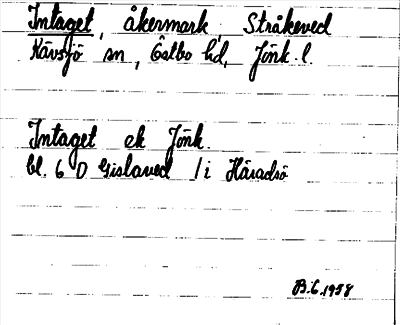 Intaget, åkermark, Stråkeved
Kävsjö sn, Östbo hd, Jönk. l.
Intaget ek Jönk.
bl. 6 D Gislaved / i Häradsö
B.C. 1958